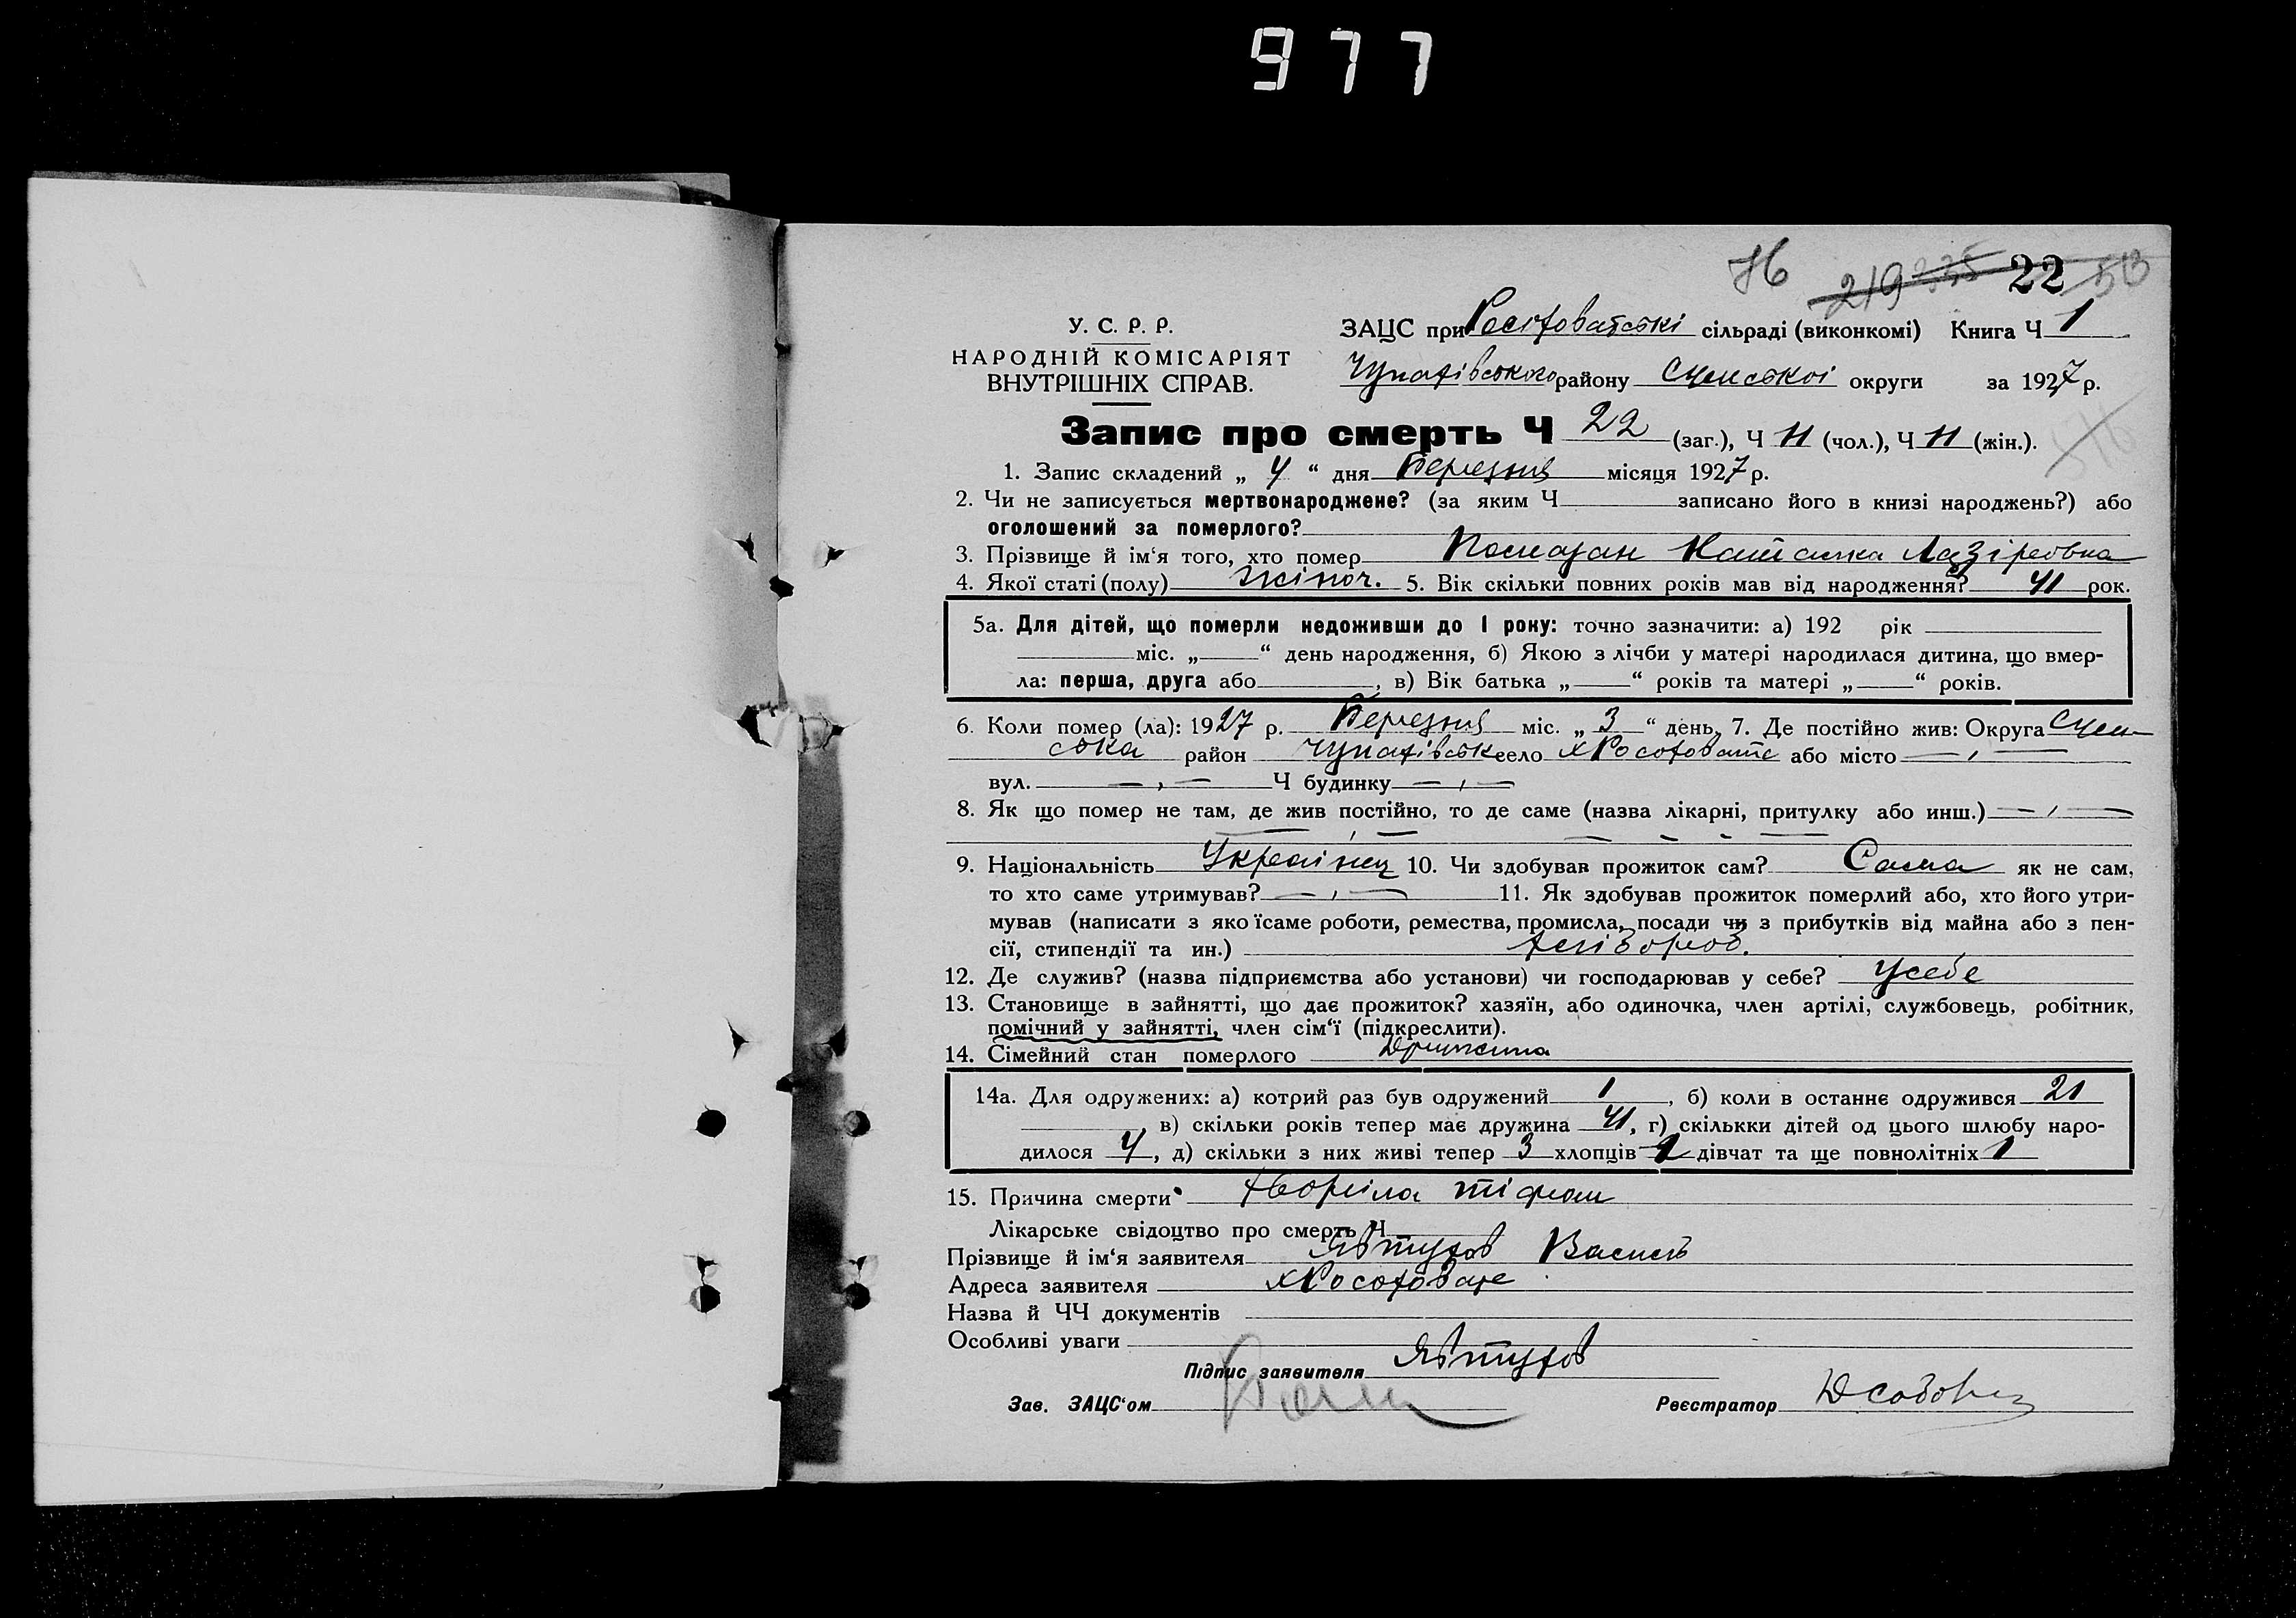 977
76 219 235 22 513
У. С. Р. Р.
НАРОДНІЙ КОМІСАРІЯТ
ВНУТРІШНІХ СПРАВ.
ЗАЦС при сільраді (виконкомі) Книга Ч 1
Чупахівського району Сумської округи за 1927 р.
Запис про смерть Ч 22 (заг.), Ч 11 (чол.), Ч 11 (жін.).
1. Запис складений „ 4 “ дня Березня місяця 1927 р.
2. Чи не записується мертвонароджене? (за яким Ч записано його в книзі народжень?) або
оголошений за померлого?
3. Прізвище й ім‘я того, хто помер
4. Якої статі (полу) жіноч. 5. Вік скільки повних років мав від народження? 41 рок.
5а. Для дітей, що померли недоживши до 1 року: точно зазначити: а) 192 рік
міс. „ “ день народження, б) Якою з лічби у матері народилася дитина, що вмер-
ла: перша, друга або , в) Вік батька „ “ років та матері „ “ років.
6. Коли помер (ла): 1927 р. Березня міс. „ 3 “ день, 7. Де постійно жив: Округа Сум
ська район Чупахівськ село або місто — , —
вул. — , — Ч будинку — , —
8. Як що помер не там, де жив постійно, то де саме (назва лікарні, притулку або инш.) — , —
9. Національність Українц 10. Чи здобував прожиток сам? Сама як не сам,
то хто саме утримував? — , — 11. Як здобував прожиток померлий або, хто його утри-
мував (написати з яко їсаме роботи, ремества, промисла, посади чи з прибутків від майна або з пен-
сії, стипендії та ин.) хлібороб.
12. Де служив? (назва підприємства або установи) чи господарював у себе? Усебе
13. Становище в зайнятті, що дає прожиток? хазяїн, або одиночка, член артілі, службовець, робітник,
помічний у зайнятті, член сім‘ї (підкреслити).
14. Сімейний стан померлого
14а. Для одружених: а) котрий раз був одружений 1 , б) коли в останнє одружився 21
, в) скільки років тепер має дружина 41, г) скількки дітей од цього шлюбу наро-
дилося 4, д) скільки з них живі тепер 3 хлопців дівчат та ще повнолітніх 1
15. Причина смерти хворіла тіфом
Лікарське свідоцтво про смерть Ч
Прізвище й ім‘я заявителя Явтухов Василь
Адреса заявителя
Назва й ЧЧ документів
Особливі уваги
Підпис заявителя Явтухов
Зав. ЗАЦС‘ом Реєстратор